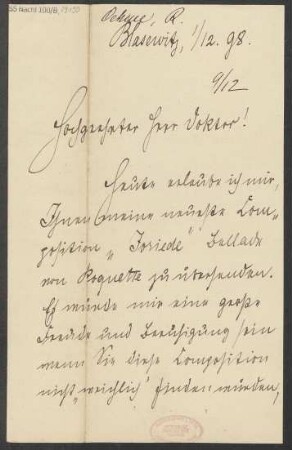 Oehme, R.
Blasewitz, 1/12. 98.
9/12
Hochgeehrter Herr Doktor!
Heute erlaube ich mir,
Ihnen meine neueste Com-
position „Joriede" Ballade
von Roquette zu übersenden.
Es würde mir eine große
Freude und Beruhigung sein
wenn Sie diese Composition
nicht „weichlich" finden würden,